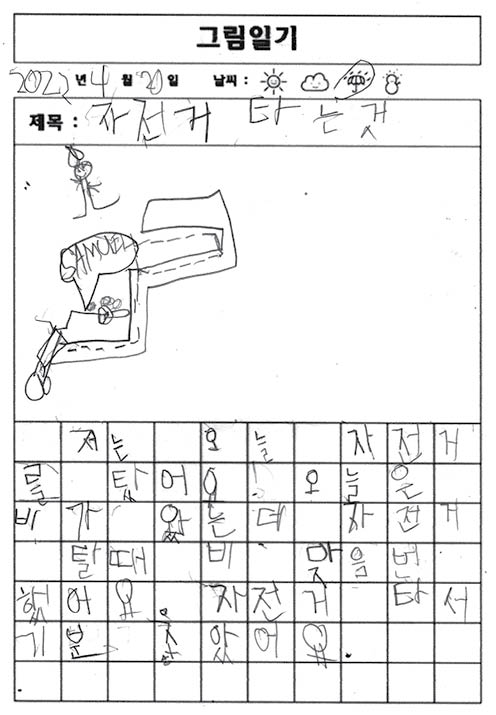 그림일기
2022년 4월 20일 날씨 :
제목 : 자전거 타는것
SAMUEL
저는 오늘 자전거
를 탑어요! 오늘은
비가 왔는데 자전거
탈때 비 맞을 번
했어요. 자전거 타서
기분 좋았어요.